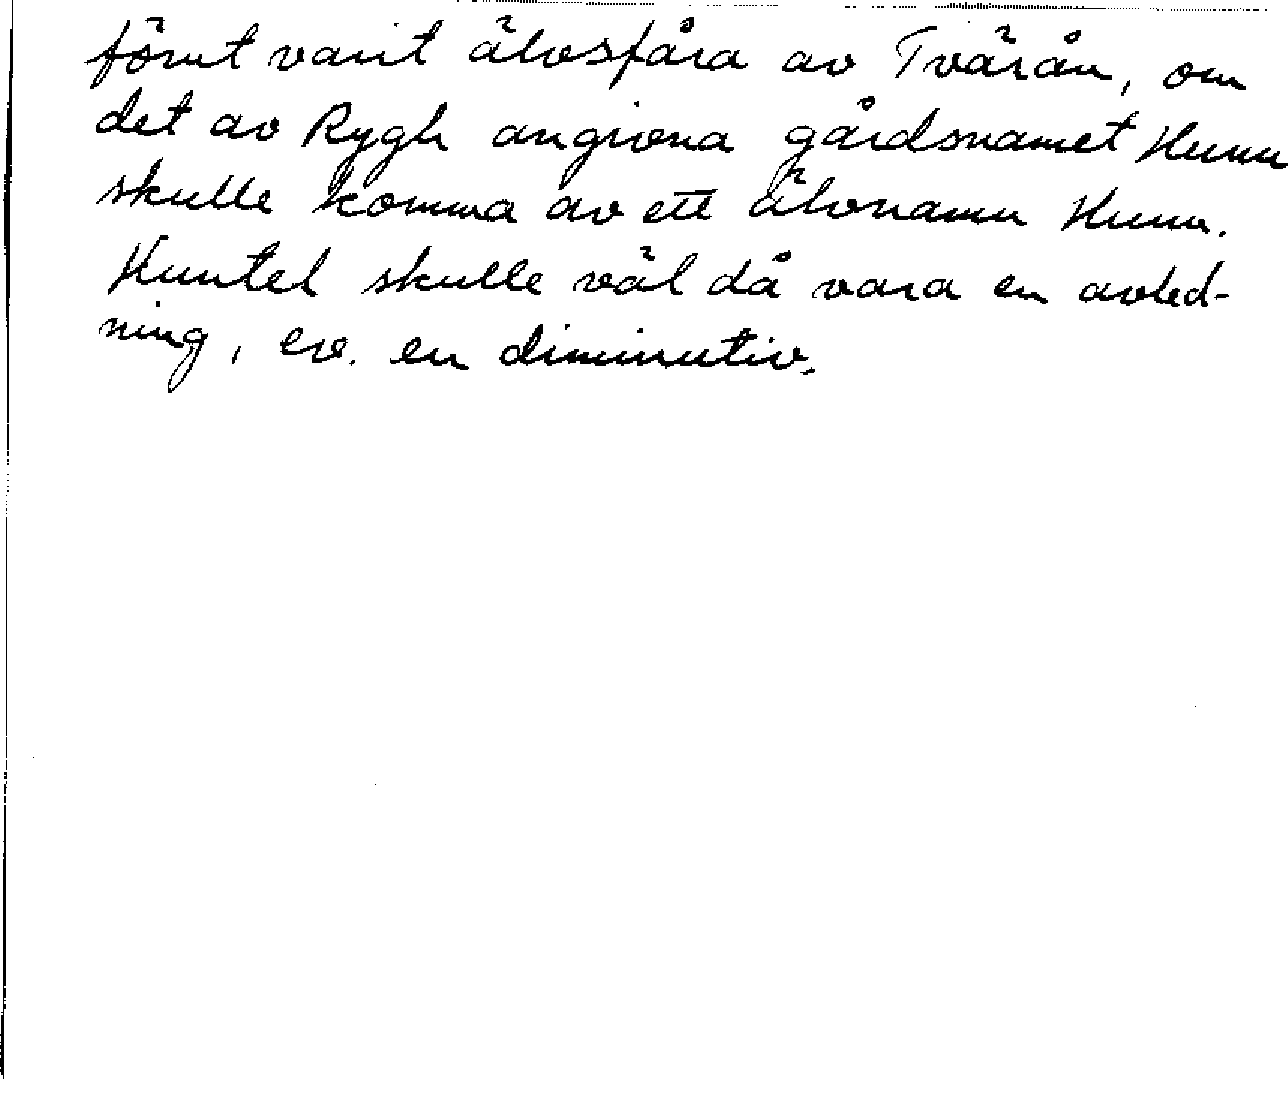 förut varit älvsfåra av Tvärån, om
det av Rygh angivna gårdsnamet Hunn
skulle komma av ett älvnamn Hunn.
Huntel skulle väl då vara en avled-
ning, ev. en diminutiv.